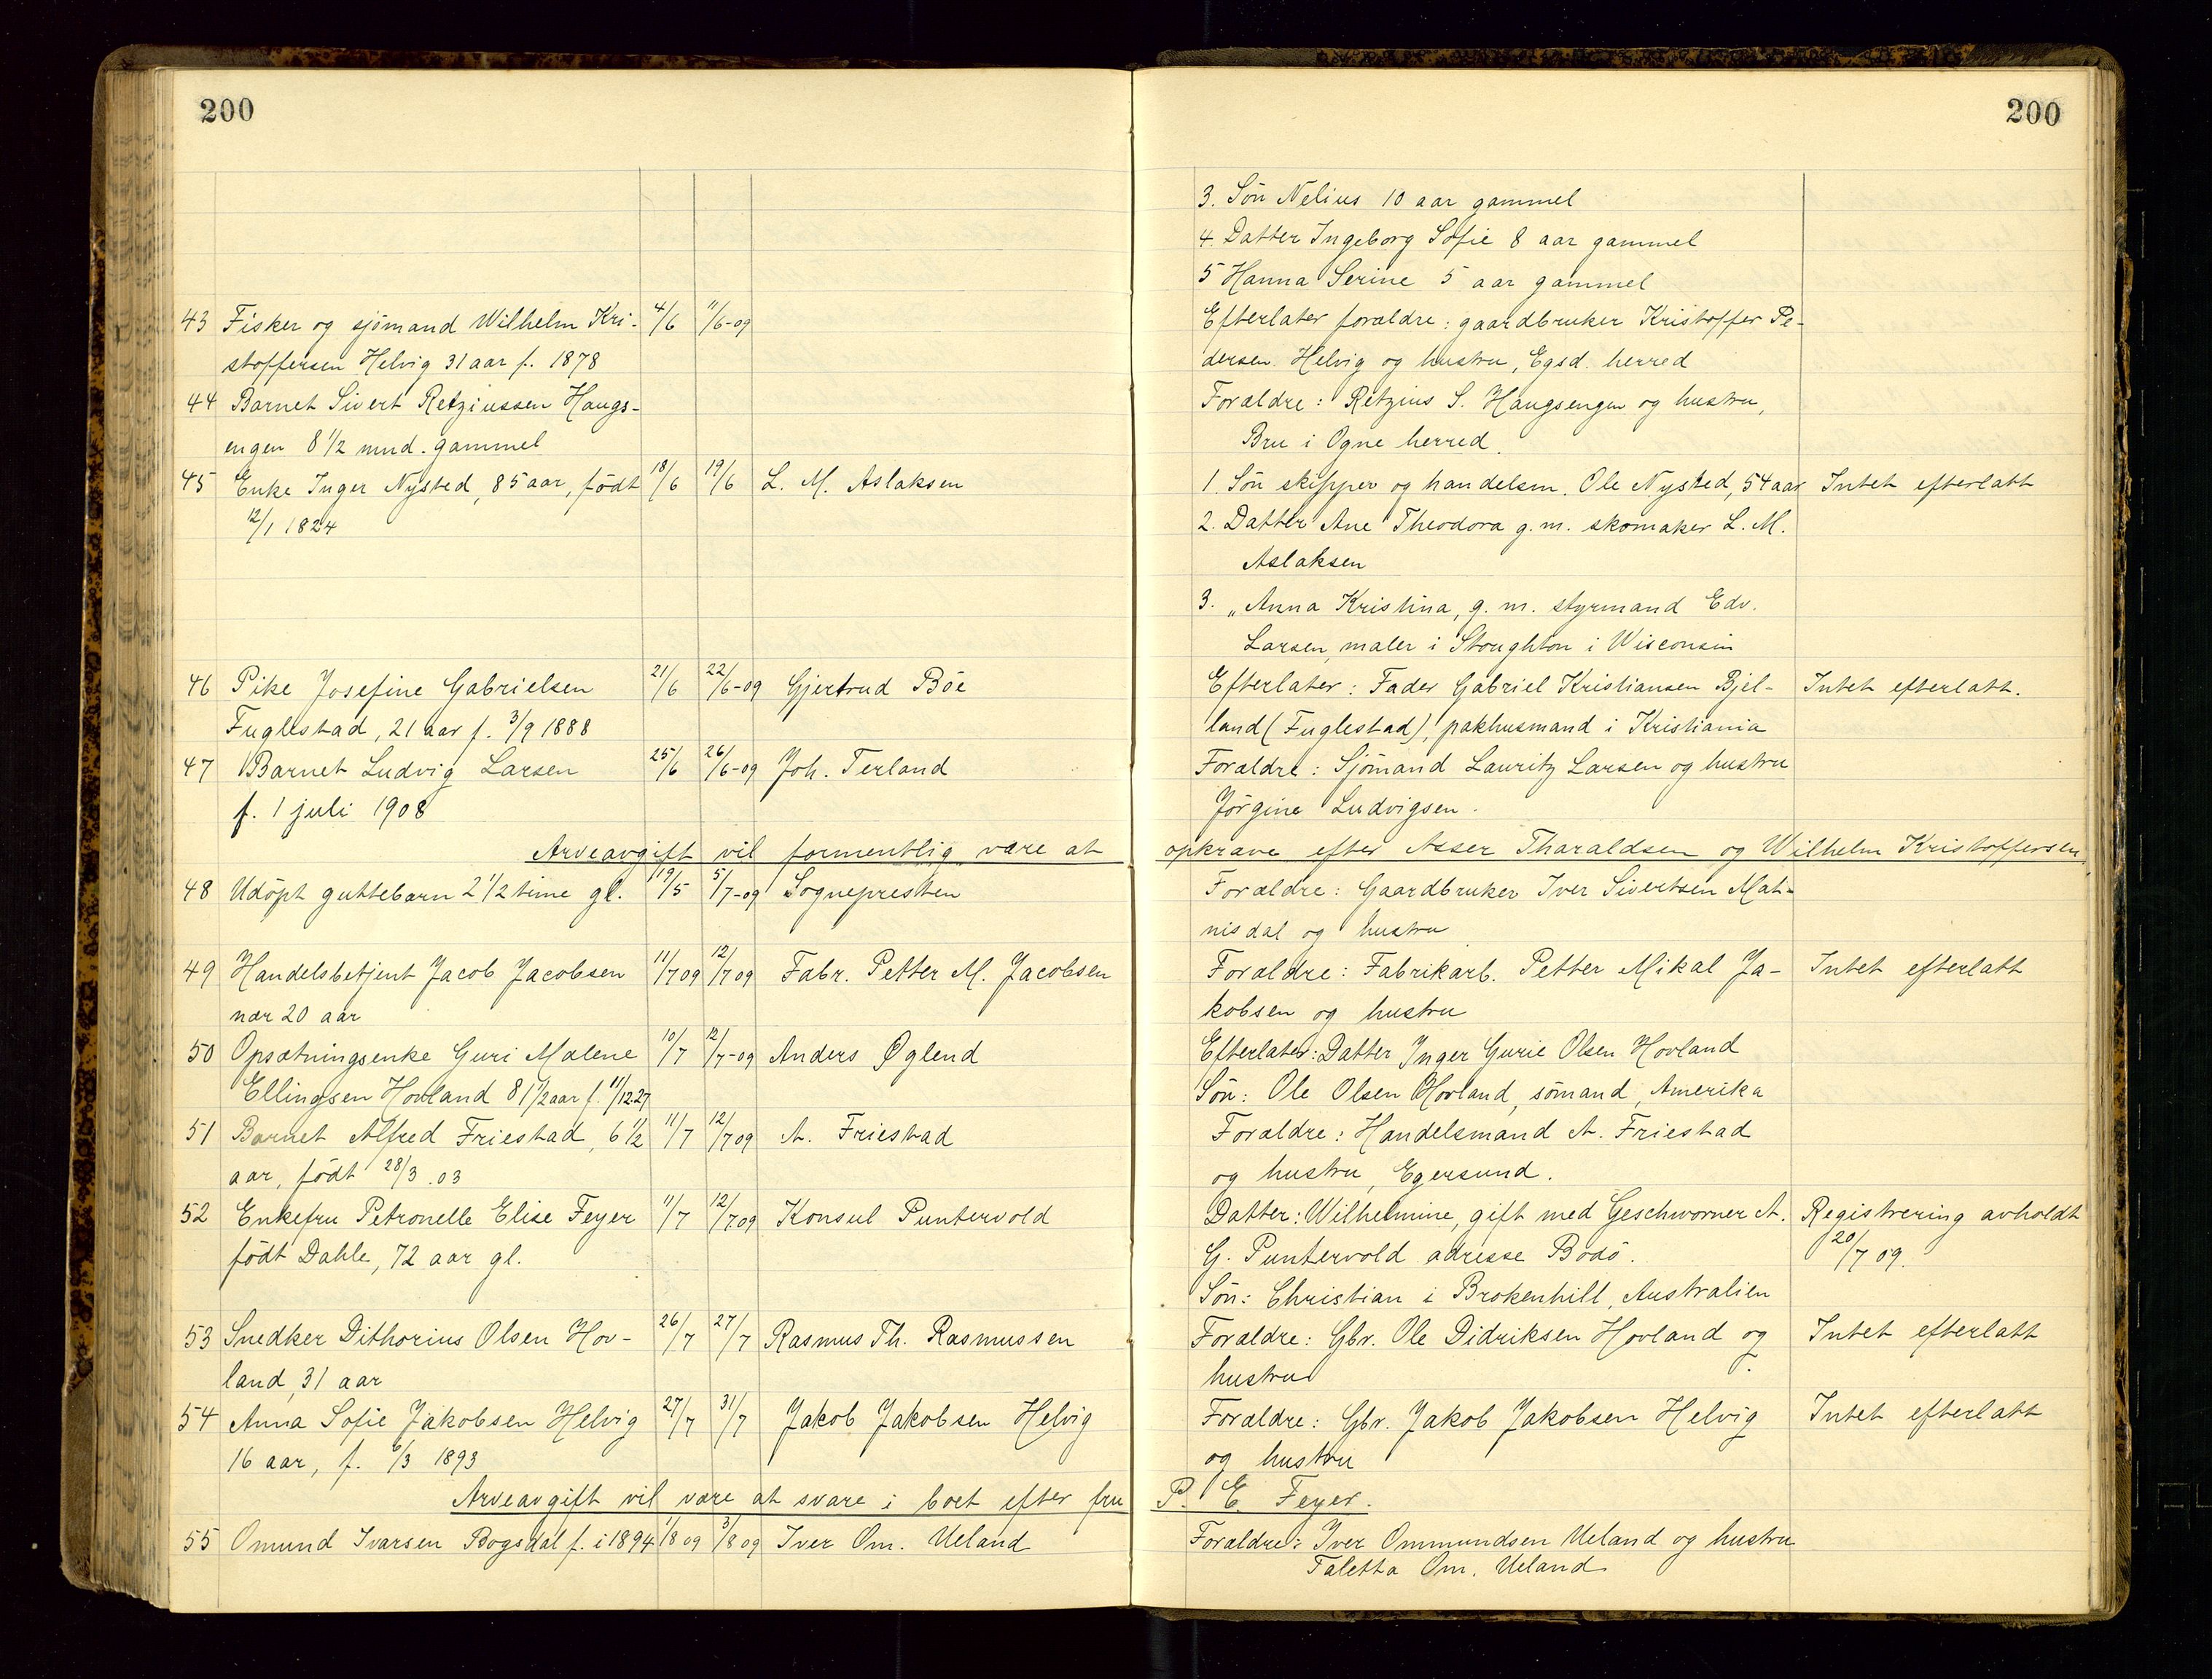 200
43 Fisker og sjömand Wilhelm Kri- 4/6 11/6-09
stoffersen Helvig 31 aar f. 1878
44 Barnet Sivert Retziussen Haugs-
engen 8 1/2 mnd. gammel
45 Enke Inger Nysted, 85 aar, födt 18/6 19/6 L. M. Aslaksen
12/1 1824
46 Pike Josefine Gabrielsen 21/6 22/6-09 Gjertrud Böe
Fuglestad, 21 aar f. 3/9 1888
47 Barnet Ludvig Larsen 25/6 26/6-09 Joh. Terland
f. 1 juli 1908
Arveavgift vil formentlig være at
48 Udöpt guttebarn 2 1/2 time gl. 19/5 5/7-09 Sognepresten
49 Handelsbetjent Jacob Jacobsen 11/7 09 12/7 09 Fabr. Petter M. Jacobsen
nær 20 aar
50 Opsætningsenke Guri Malene 10/7 12/7-09 Anders Øglend
Ellingsen Hovland 81 1/2 aar f. 11/12.27
51 Barnet Alfred Friestad, 6 1/2 11/7 12/7 09 A. Friestad
aar, födt 28/3.03
52 Enkefru Petronelle Elise Feyer 11/7 12/7.09 Konsul Puntervold
födt Dahle, 72 aar gl.
53 Snedker Dithorius Olsen Hov- 26/7 27/7 Rasmus Th. Rasmussen
land, 31 aar
54 Anna Sofie Jakobsen Helvig 27/7 31/7 Jakob Jakobsen Helvig
16 aar, f. 6/3 1893
Arveavgift vil være at svare i boet efter fru
55 Omund Ivarsen Bogsdal f. i 1894 1/8 09 3/8 09 Iver Om. Ueland
200
3. Sön Nelius 10 aar gammel
4. Datter Ingeborg Sofie 8 aar gammel
5 Hanna Serine 5 aar gammel
Efterlater forældre: gaardbruker Kristoffer Pe-
dersen Helvig og hustru, Egsd. herred
Forældre: Retzius S. Haugsengen og hustru,
Bru i Ogne herred.
1. Sön skipper og handelsm. Ole Nysted, 54 aar Intet efterlatt
2. Datter Ane Theodora g.m. skomaker L. M.
Aslaksen
3. „ Anna Kristina, g. m. styrmand Edv.
Larsen, maler i Stoughton i Wisconsin
Efterlater: Fader Gabriel Kristiansen Bjel- Intet efterlatt.
land (Fuglestad), pakhusmand i Kristiania
Forældre: Sjömand Lauritz Larsen og hustru
Jörgine Ludvigsen.
opkræve efter Asser Tharaldsen og Wilhelm Kristoffersen.
Forældre: Gaardbruker Iver Sivertsen Mat-
nisdal og hustru
Forældre: Fabrikarb. Petter Mikal Ja- Intet efterlatt
kobsen og hustru
Efterlater: Datter Inger Gurie Olsen Hovland
Sön: Ole Olsen Hovland, sömand, Amerika
Forældre: Handelsmand A. Friestad
og hustru, Egersund.
Datter: Wilhelmine, gift med Geschworner A. Registrering avholdt
G. Puntervold adresse Bodö. 20/7 09.
Sön: Christian i Brokenhill, Australien
Forældre: Gbr. Ole Didriksen Hovland og Intet efterlatt
hustru.
Forældre: Gbr. Jakob Jakobsen Helvig Intet efterlatt
og hustru
P. E. Feyer.
Forældre: Iver Ommundsen Ueland og hustru
Taletta Om. Ueland